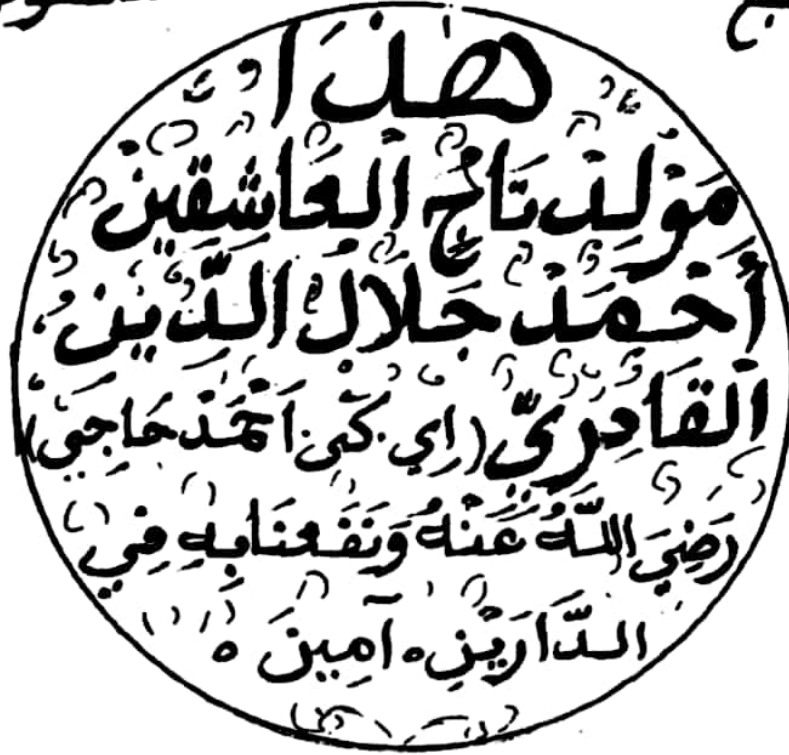 هٰذَا
مَوْلِدْ تَاجُ الْعَاشِقِينْ
أَحْمَدْ جَلَالُ الدِّينْ
الْقَادِرِيّ (اِي. كَي. اَحْمَدْ حَاجِي)
رَضِيَ اللَّهُ عَنْهُ وَنَفَعَنَا بِهِ فِي
الدَّارَيْنِ. آمِينَ ه